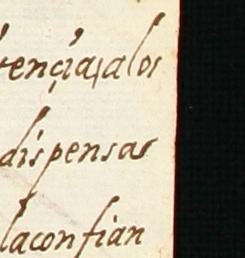 tençia, a los
dispensar
la confian